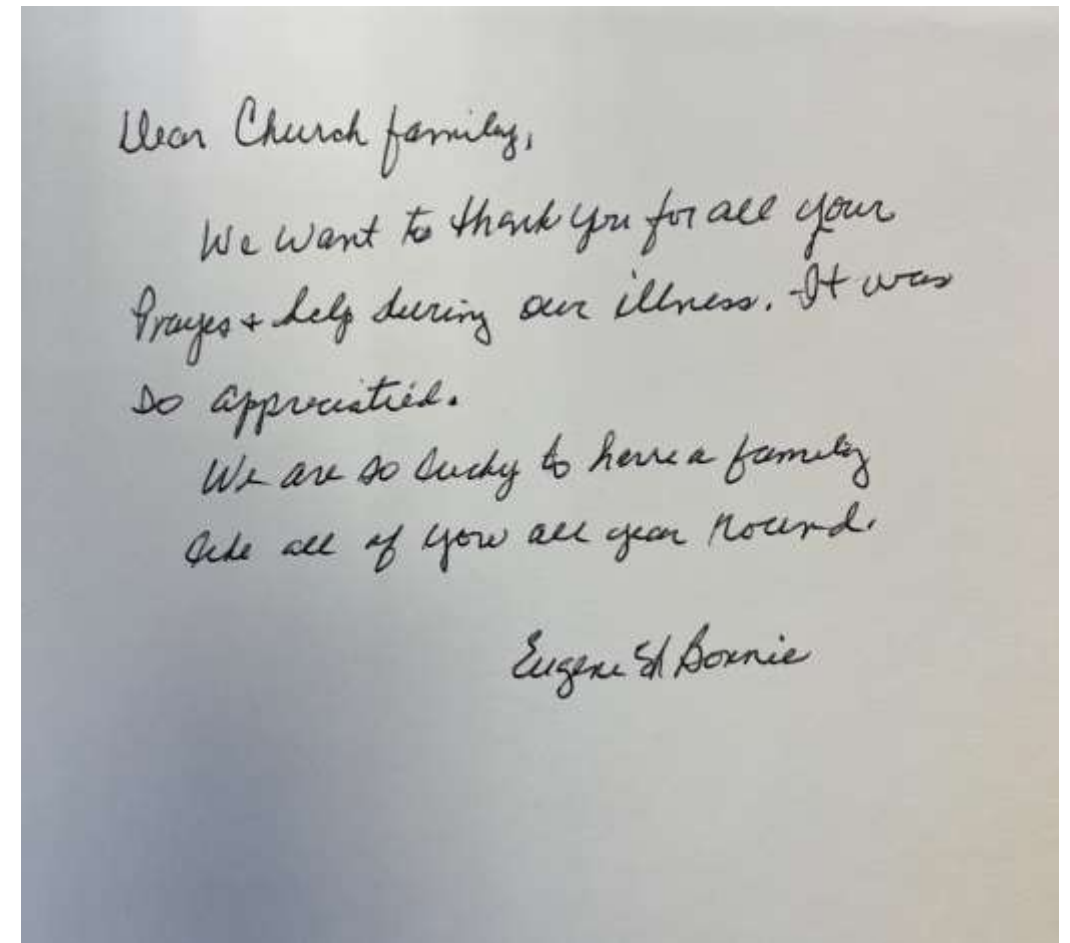 Dear Church family,
We want to thank you for all your
Prayes + help during our illness. It was
so appreciatied.
We are so lucky to have a family
like all of you all year round.
Eugene & Bonnie